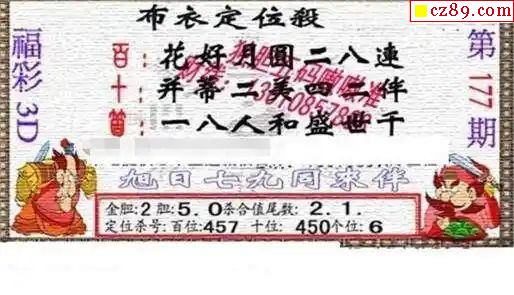 cz89.com
布衣定位殺
福彩3D
第177期
百：花好月圓二八連
十：并蒂二美四二伴
箇：一八人和盛世千
旭日七九同來伴
金胆:2胆:5.0杀合值尾数:2.1.
定位杀号:百位:457 十位:450个位:6